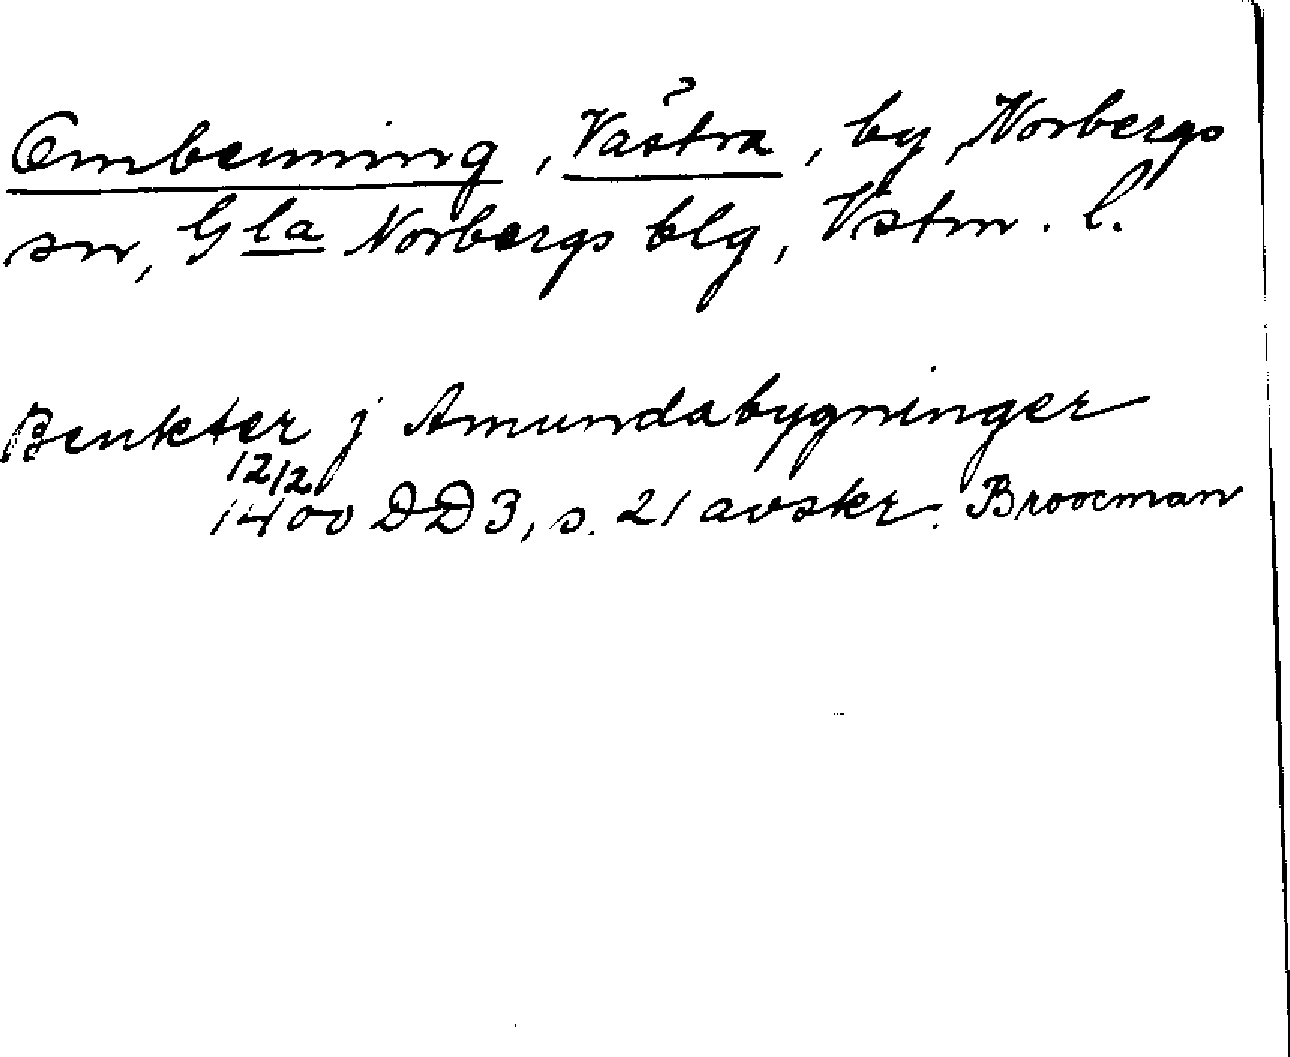 Embenning, Västra, by, Norbergs
sn, Gla Norbergs blg, Vstm. l.
Benkter j Amundabygninger
12/2
1400 DD3, s. 21 avskr. Broocman